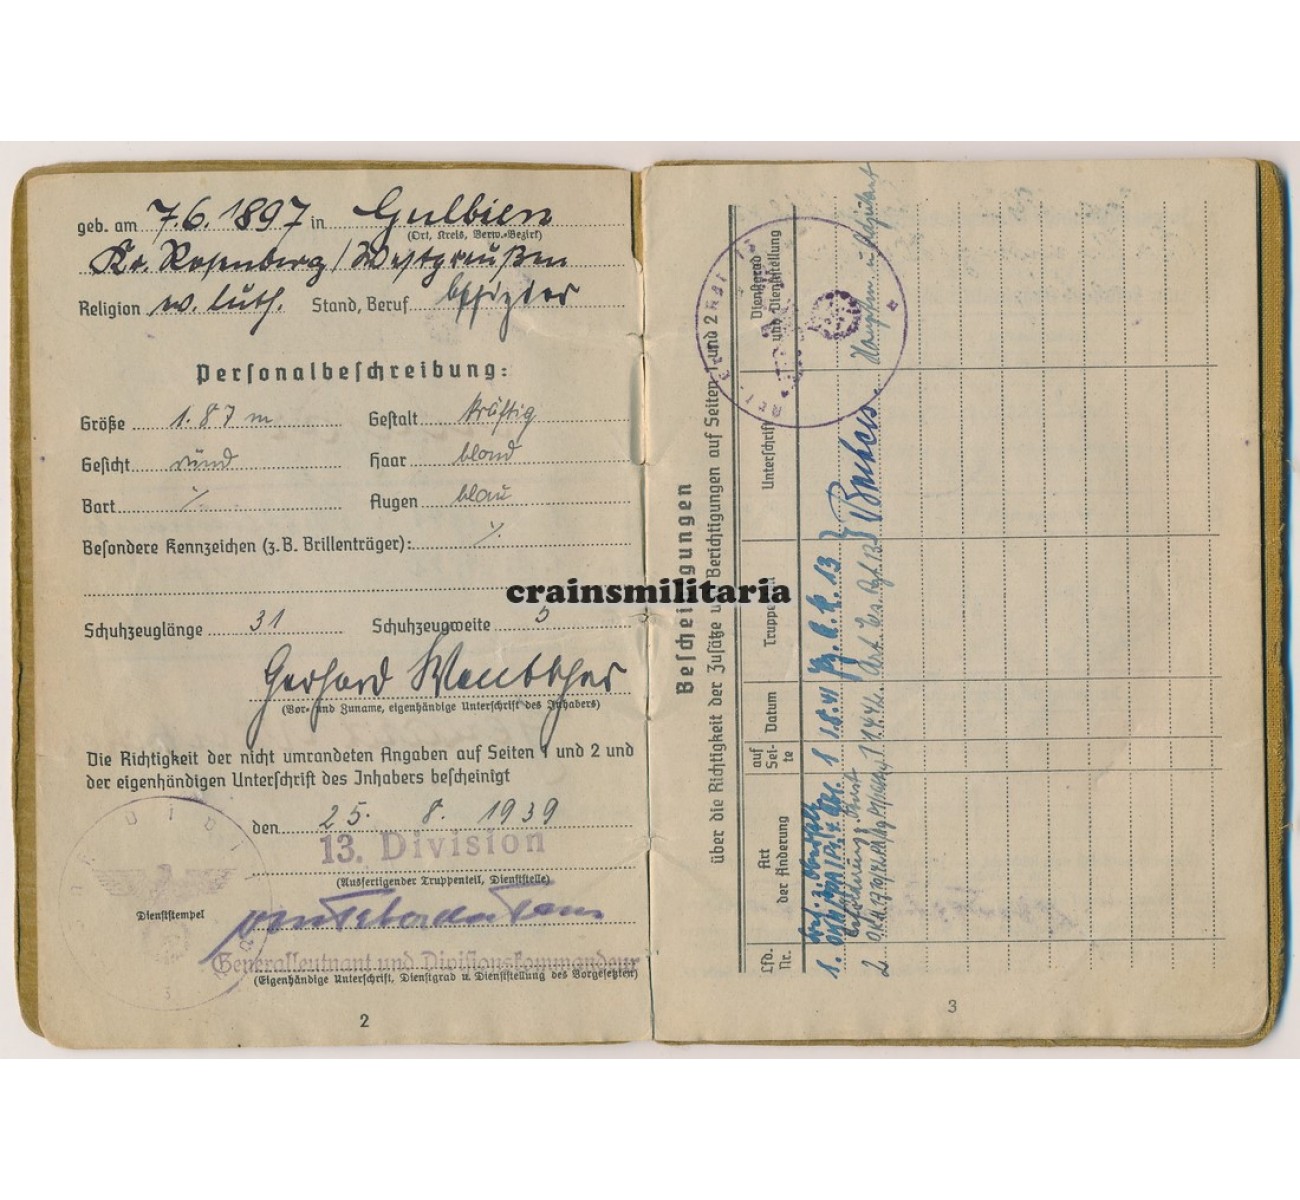 geb. am 7.6.1897 in Gulbien
(Ort, Kreis, Verw.-Bezirk)
Kr. Rosenberg/Westpreußen
Religion ev. luth. Stand, Beruf Offizier
Personalbeschreibung:
Größe 1.87 m Gestalt kräftig
Gesicht rund Haar blond
Bart ⁒ Augen blau
Besondere Kennzeichen (z.B. Brillenträger): ⁒
Schuhzeuglänge 31 Schuhzeugweite 5
Gerhard
(Vor- und Zuname, eigenhändige Unterschrift des Inhabers)
Die Richtigkeit der nicht umrandeten Angaben auf Seiten 1 und 2 und
der eigenhändigen Unterschrift des Inhabers bescheinigt
den 25. 8. 1939
13. Division
(Ausfertigender Truppenteil, Dienststelle)
Dienststempel
Generalleutnant und Divisionskommandeur
(Eigenhändige Unterschrift, Dienstgrad u. Dienststellung des Vorgesetzten)
2
crainsmilitaria
Bescheinigungen
über die Richtigkeit der Zusätze und Berichtigungen auf Seiten 1 und 2
Lfd. Nr.
Art der Änderung
auf Seite
Datum
Truppenteil
Unterschrift
Dienstgrad und Dienststellung
1. 1 1.8.41 Pz. A. R. 13
2. 1 1.4.42 Hauptm. u. Adjutant
3